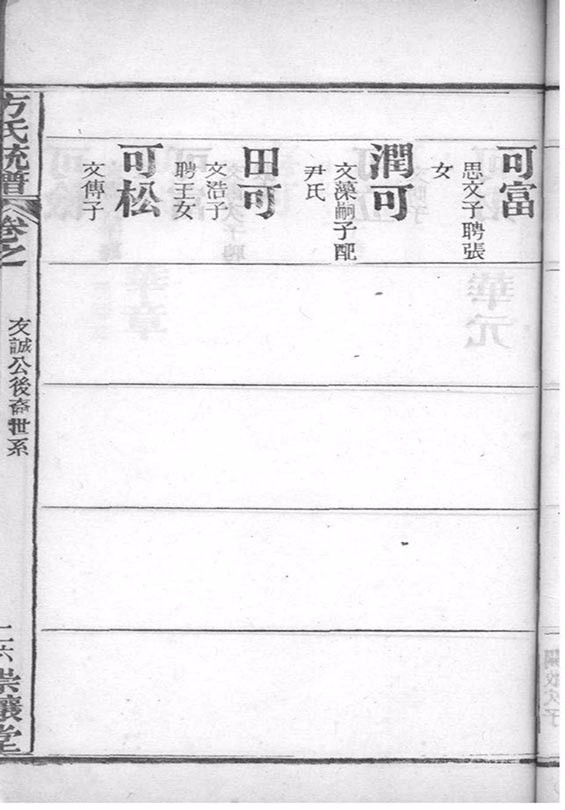 可富
思文子聘張
女
潤可
文藻嗣子配
尹氏
田可
文浩子
聘王女
可松
文傳子
方氏統譜
卷之一
友誠公後裔世系
二六
崇讓堂